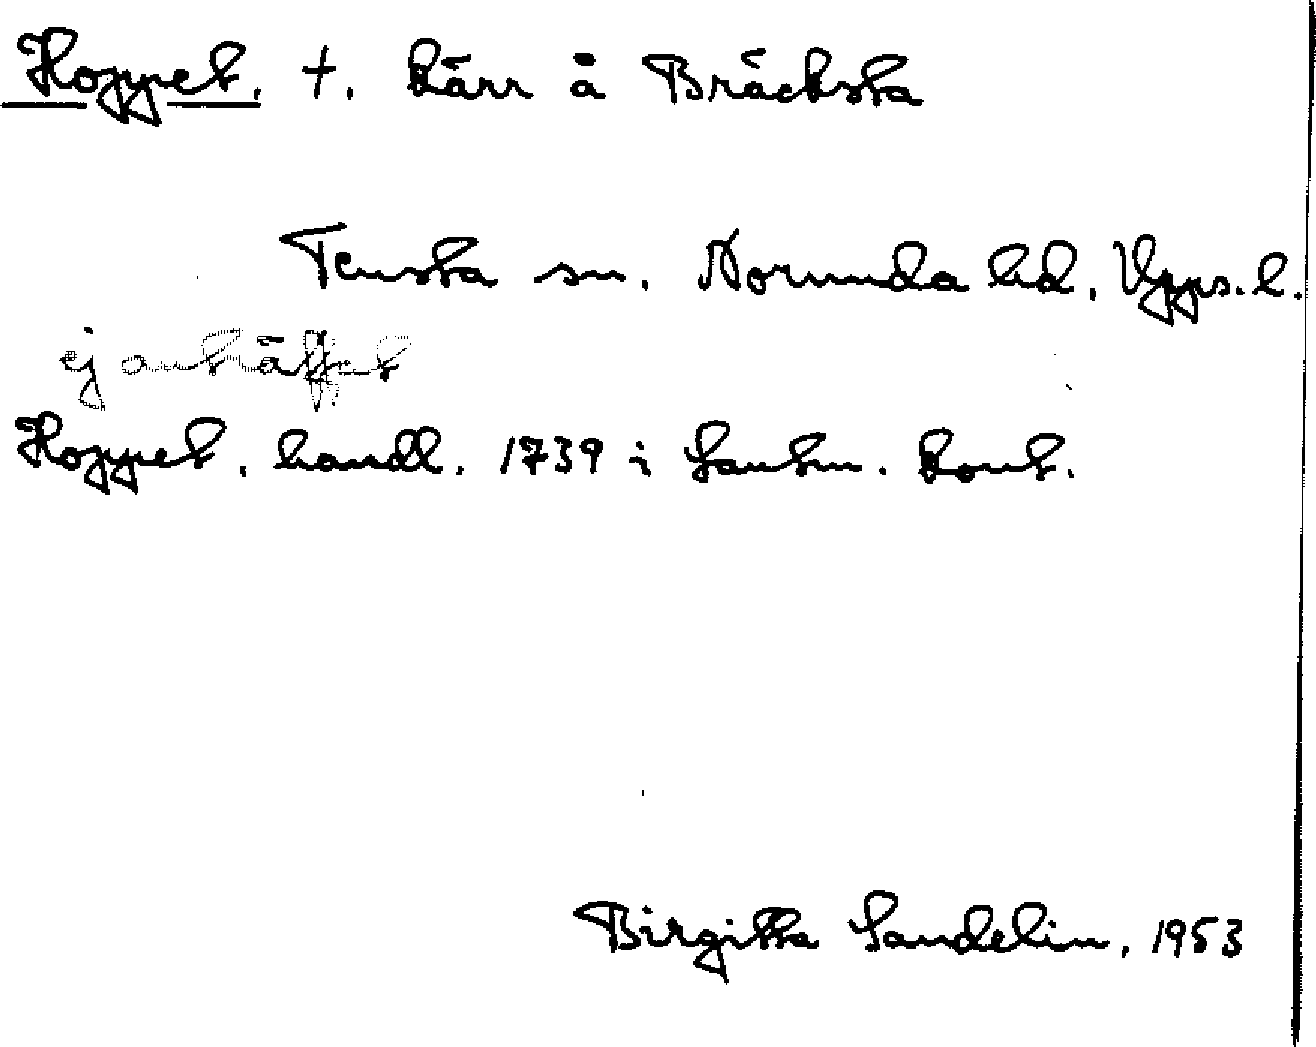 Hoppet. †. kärr å Bräcksta
Tensta sn. Norunda hd. Upps. l.
ej anträffat
Hoppet. handl. 1739 i Lantm. kont.
Birgitta Sandelin, 1953